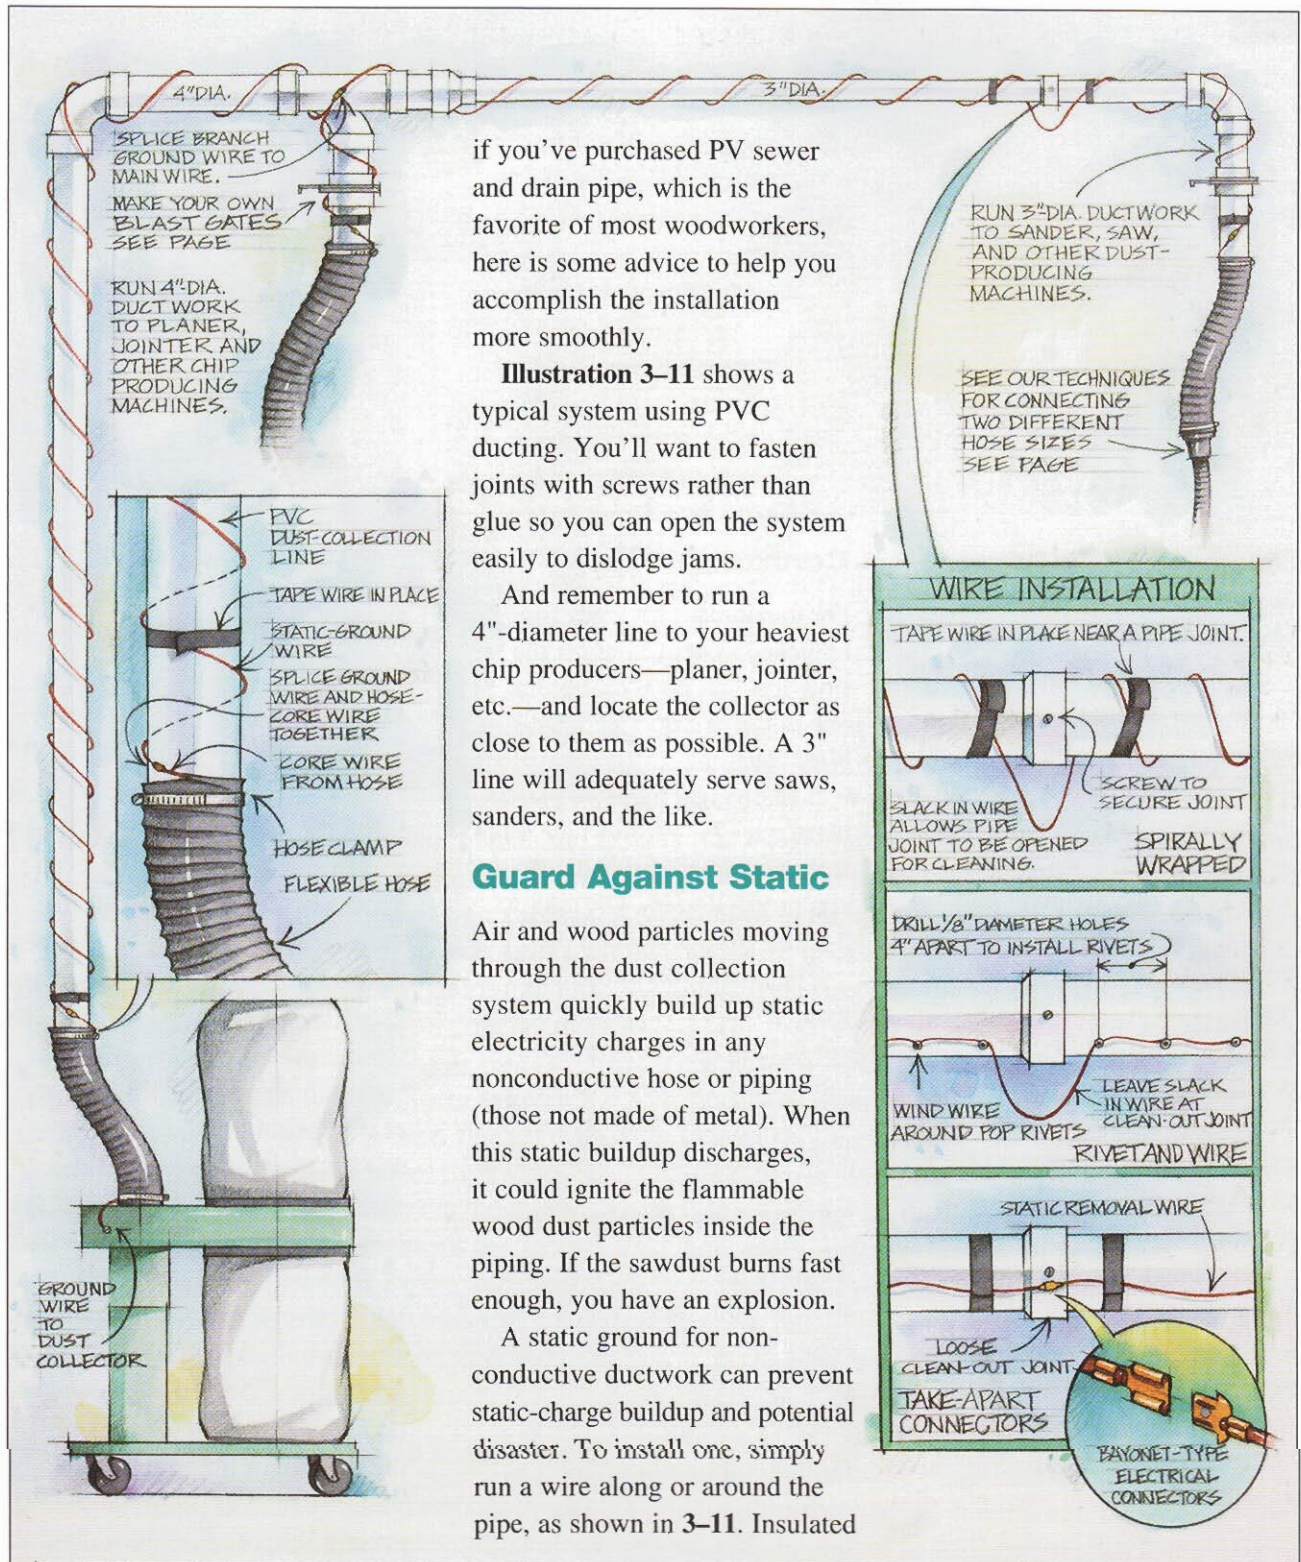 4"DIA.
3"DIA.
SPLICE BRANCH
GROUND WIRE TO
MAIN WIRE.
MAKE YOUR OWN
BLAST GATES
SEE PAGE
RUN 4"-DIA.
DUCTWORK
TO PLANER,
JOINTER AND
OTHER CHIP
PRODUCING
MACHINES.
PVC
DUST-COLLECTION
LINE
TAPE WIRE IN PLACE
STATIC-GROUND
WIRE
SPLICE GROUND
WIRE AND HOSE-
CORE WIRE
TOGETHER
CORE WIRE
FROM HOSE
HOSE CLAMP
FLEXIBLE HOSE
GROUND
WIRE
TO
DUST
COLLECTOR
if you've purchased PV sewer
and drain pipe, which is the
favorite of most woodworkers,
here is some advice to help you
accomplish the installation
more smoothly.
Illustration 3–11 shows a
typical system using PVC
ducting. You'll want to fasten
joints with screws rather than
glue so you can open the system
easily to dislodge jams.
And remember to run a
4"-diameter line to your heaviest
chip producers—planer, jointer,
etc.—and locate the collector as
close to them as possible. A 3"
line will adequately serve saws,
sanders, and the like.
Guard Against Static
Air and wood particles moving
through the dust collection
system quickly build up static
electricity charges in any
nonconductive hose or piping
(those not made of metal). When
this static buildup discharges,
it could ignite the flammable
wood dust particles inside the
piping. If the sawdust burns fast
enough, you have an explosion.
A static ground for non-
conductive ductwork can prevent
static-charge buildup and potential
disaster. To install one, simply
run a wire along or around the
pipe, as shown in 3–11. Insulated
RUN 3"-DIA. DUCTWORK
TO SANDER, SAW,
AND OTHER DUST-
PRODUCING
MACHINES.
SEE OUR TECHNIQUES
FOR CONNECTING
TWO DIFFERENT
HOSE SIZES
SEE PAGE
WIRE INSTALLATION
TAPE WIRE IN PLACE NEAR A PIPE JOINT.
SCREW TO
SECURE JOINT
SLACK IN WIRE
ALLOWS PIPE
JOINT TO BE OPENED
FOR CLEANING.
SPIRALLY
WRAPPED
DRILL 1/8" DIAMETER HOLES
4" APART TO INSTALL RIVETS
WIND WIRE
AROUND POP RIVETS
LEAVE SLACK
IN WIRE AT
CLEAN-OUT JOINT
RIVET AND WIRE
STATIC REMOVAL WIRE
LOOSE
CLEAN-OUT JOINT
TAKE-APART
CONNECTORS
BAYONET-TYPE
ELECTRICAL
CONNECTORS